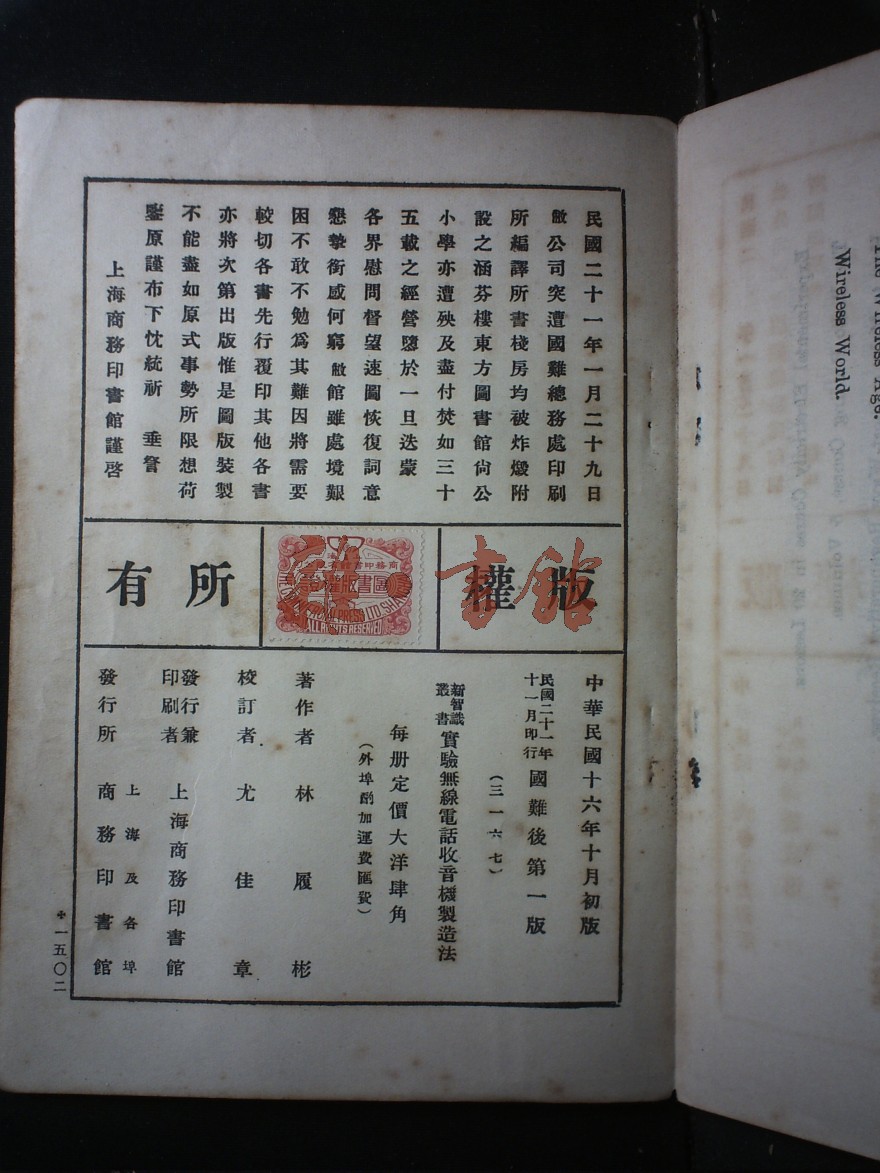 民國二十一年一月二十九日
敝公司突遭國難總務處印刷
所編譯所書棧房均被炸燬附
設之涵芬樓東方圖書館尙公
小學亦遭殃及盡付焚如三十
五載之經營隳於一旦迭蒙
各界慰問督望速圖恢復詞意
懇摯銜感何窮敝館雖處境艱
困不敢不勉爲其難因將需要
較切各書先行覆印其他各書
亦將次第出版惟是圖版裝製
不能盡如原式事勢所限想荷
鑒原謹布下忱統祈 垂詧
上海商務印書館謹啓
版權
書館
商務印書館有限公司
ALL RIGHTS RESERVED
所有
中華民國十六年十月初版
民國二十一年十一月印行 國難後第一版
(三一六七)
新智識叢書 實驗無線電話收音機製造法
每册定價大洋肆角
(外埠酌加運費匯費)
著作者 林履彬
校訂者 尤佳章
發行兼印刷者 上海商務印書館
發行所 上海及各埠 商務印書館
一五〇二
The Wireless Age.
Wireless World.